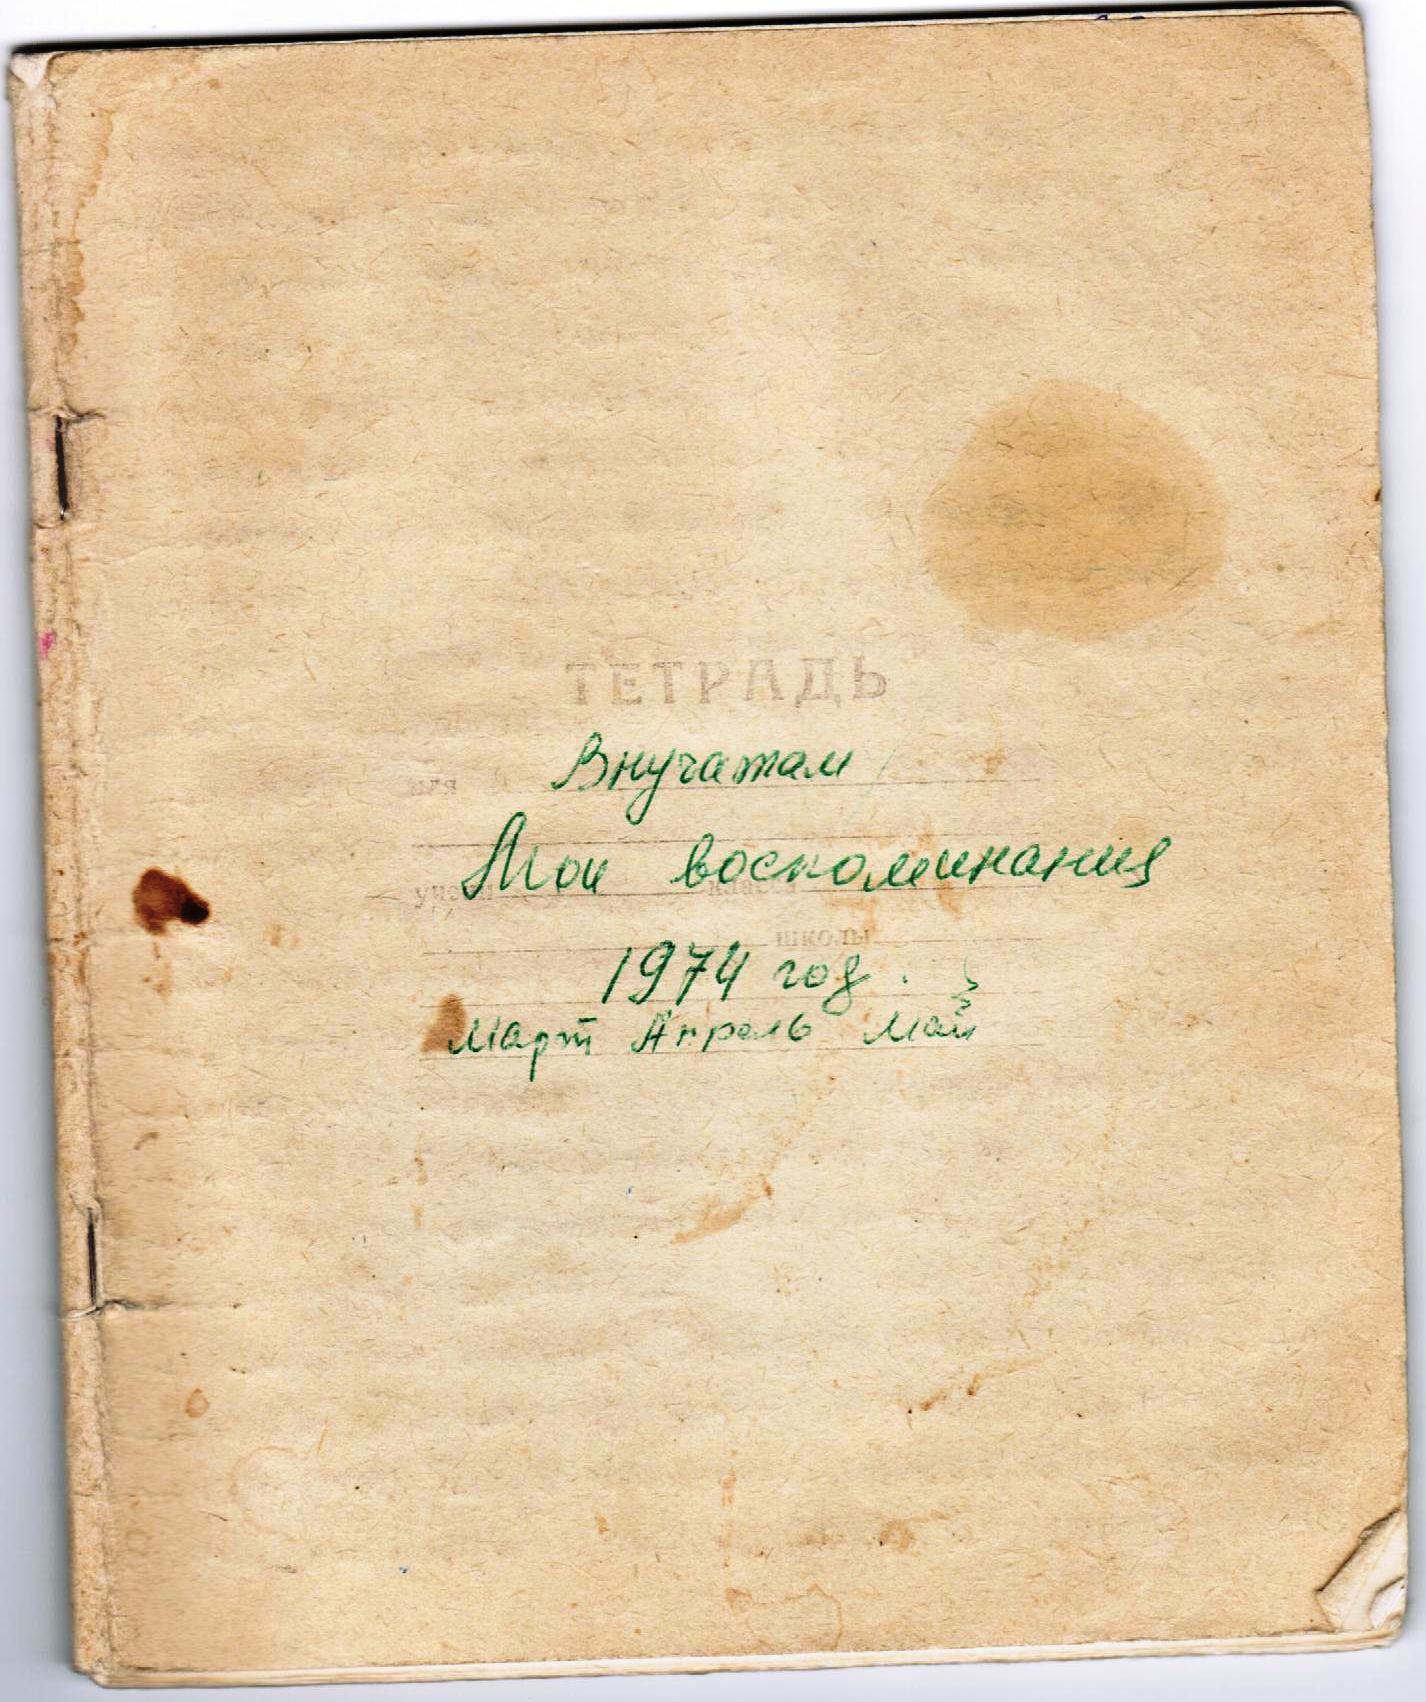 ТЕТРАДЬ
для
Внучатам
Мои воспоминания
учени класса
школы
1974 год.
Март Апрель Май